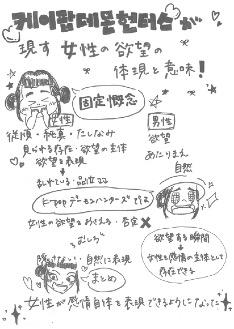 케이팝데몬헌터스が
現す 女性の欲望の
体現と意味!
固定概念
女性
男性
従順・純真・たしなみ
見られる存在・欲望の主体
欲望を表現
欲望
あたりまえ
自然
乱れている・品性
K-popデーモンハンターズでは
女性の欲望をおさえる・否定 ✖
むしろ
隠さない・自然に表現
欲望する瞬間
女性も感情の主体として
存在できる
まとめ
女性が感情自体を表現できるようになった